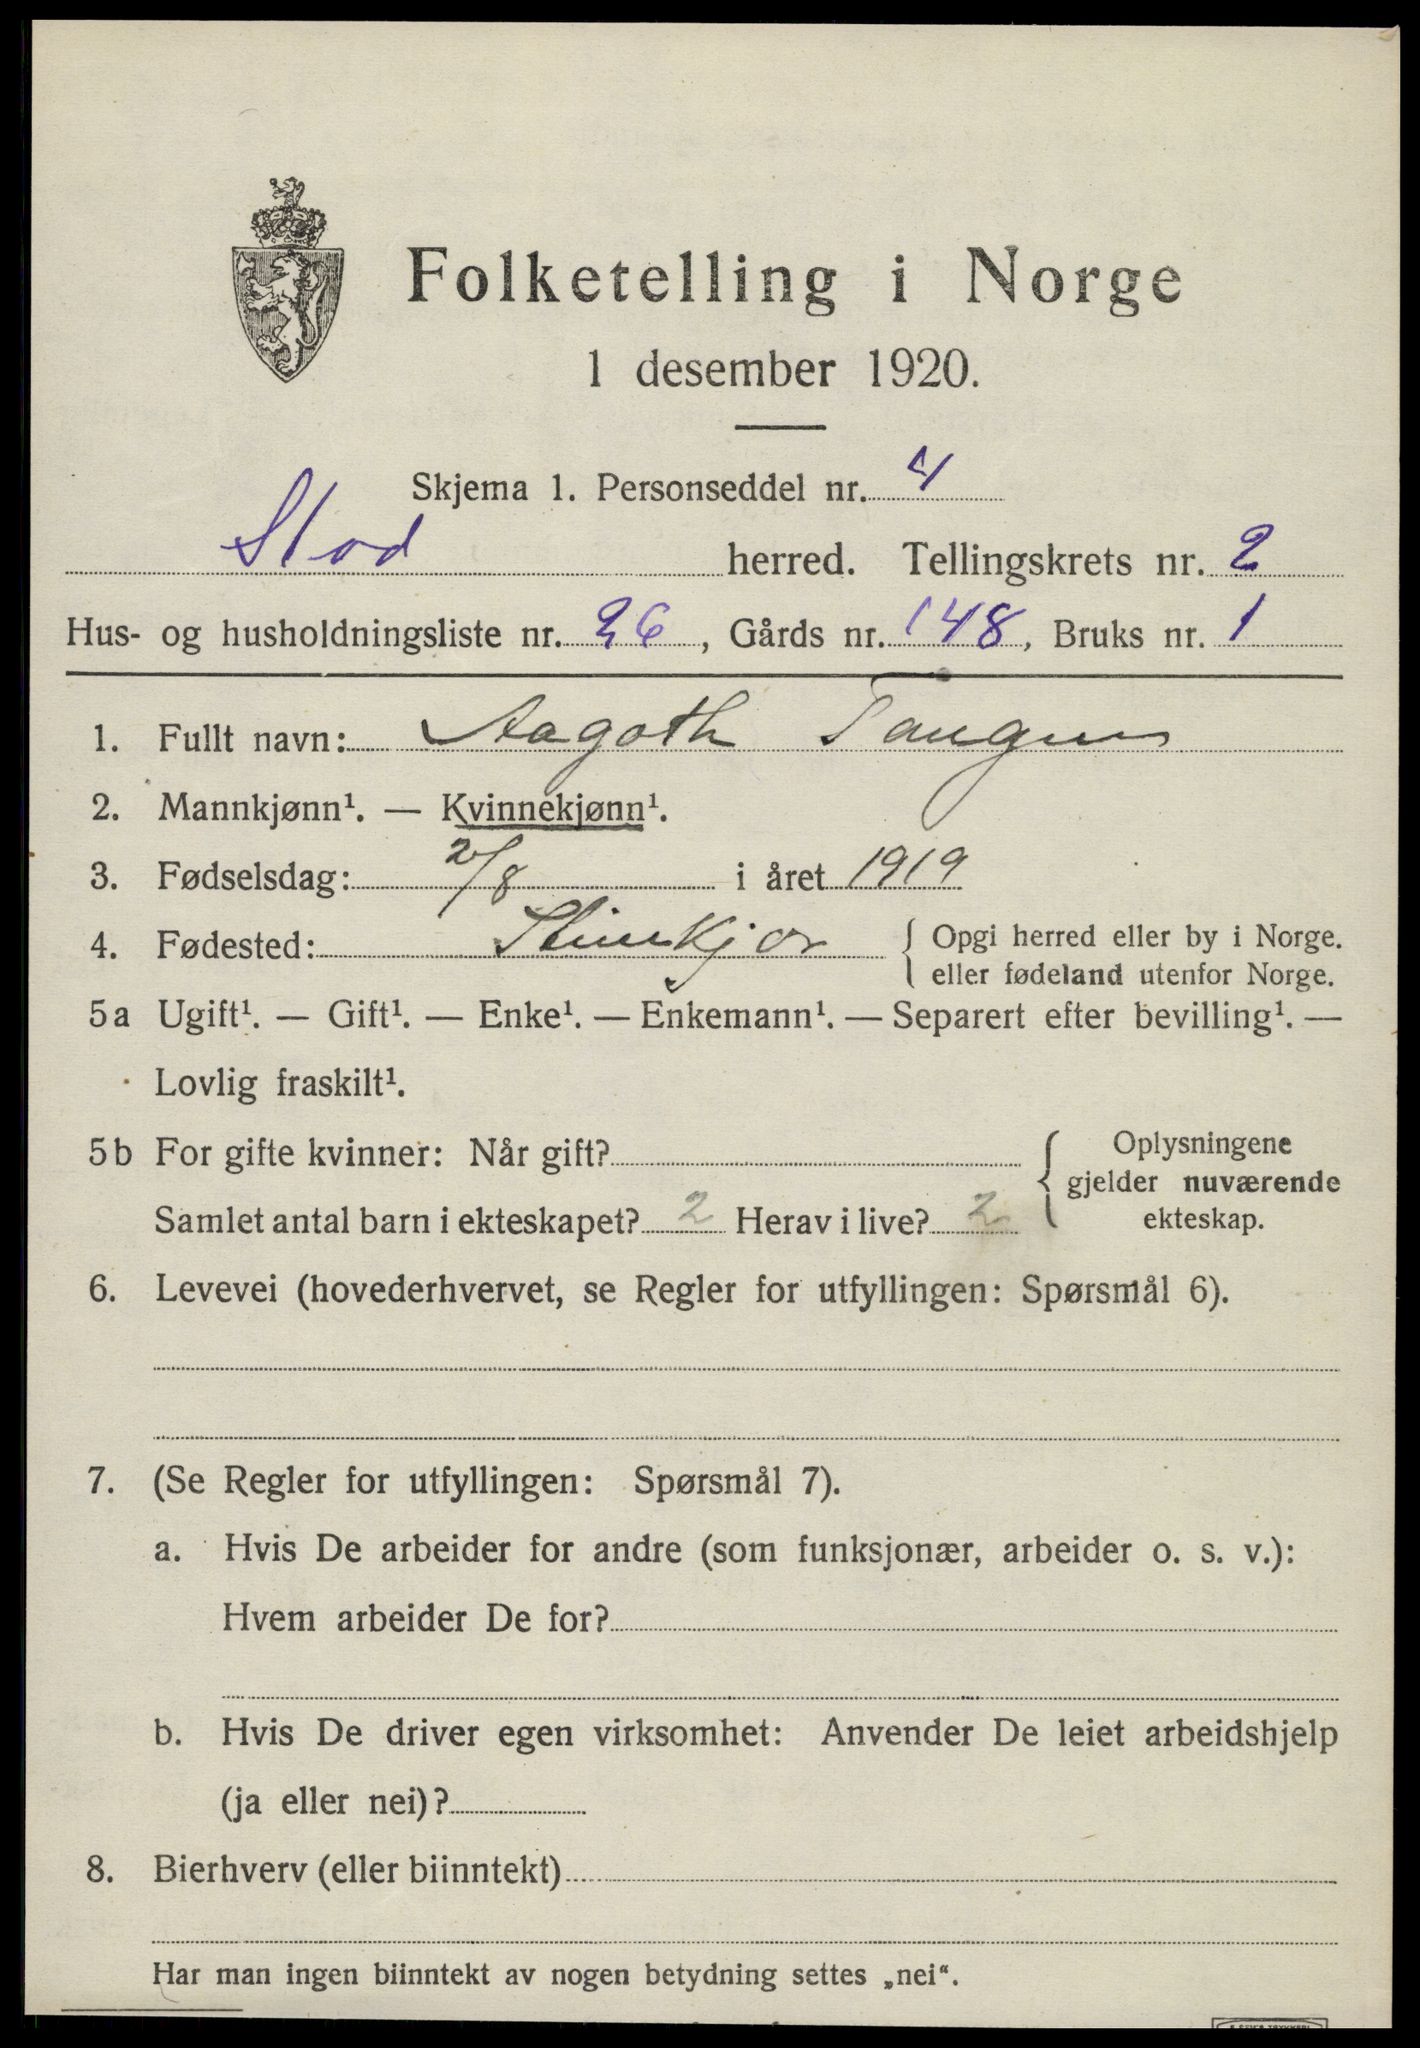 Folketelling i Norge
1 desember 1920.
Skjema 1. Personseddel nr. 4
Stod herred. Tellingskrets nr. 2
Hus- og husholdningsliste nr. 26, Gårds nr. 148, Bruks nr. 1
1. Fullt navn: Aagoth
2. Mannkjønn¹. — Kvinnekjønn¹.
3. Fødselsdag: 2/8 i året 1919
4. Fødested: Stenkjær { Opgi herred eller by i Norge.
eller fødeland utenfor Norge.
5a Ugift¹. — Gift¹. — Enke¹. — Enkemann¹. — Separert efter bevilling¹. —
Lovlig fraskilt¹.
5b For gifte kvinner: Når gift? { Oplysningene
gjelder nuværende
Samlet antal barn i ekteskapet? 2 Herav i live? 2 ekteskap.
6. Levevei (hovederhvervet, se Regler for utfyllingen: Spørsmål 6).
7. (Se Regler for utfyllingen: Spørsmål 7).
a. Hvis De arbeider for andre (som funksjonær, arbeider o. s. v.):
Hvem arbeider De for?
b. Hvis De driver egen virksomhet: Anvender De leiet arbeidshjelp
(ja eller nei)?
8. Bierhverv (eller biinntekt)
Har man ingen biinntekt av nogen betydning settes „nei“.